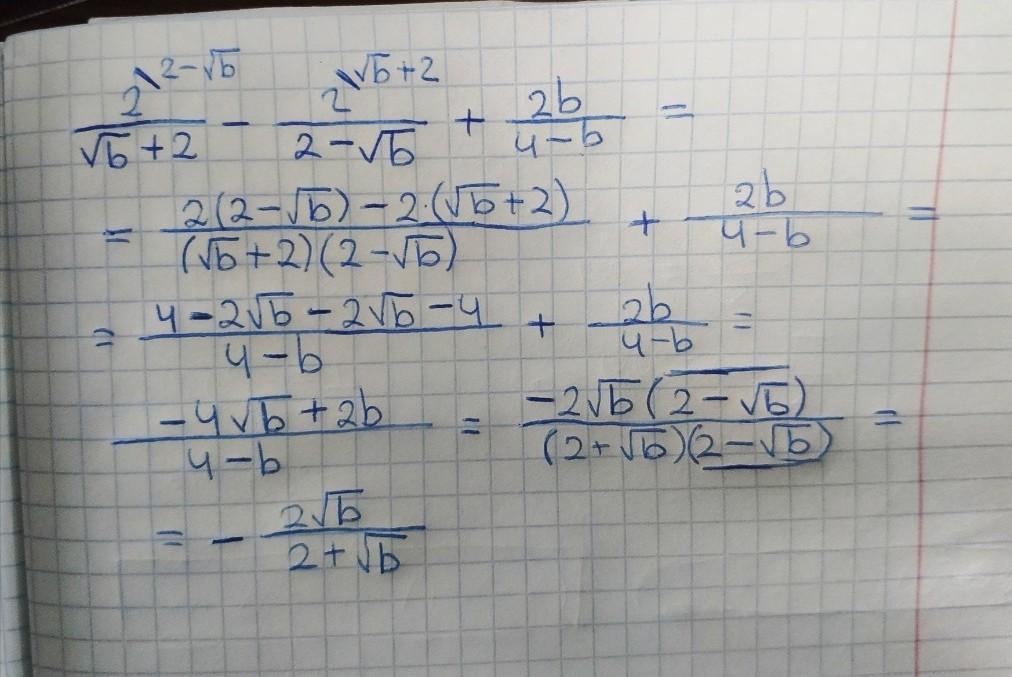 2^{\2-√b}/(√b+2) - 2^{\√b+2}/(2-√b) + 2b/(4-b) =
= (2(2-√b)-2·(√b+2))/((√b+2)(2-√b)) + 2b/(4-b) =
= (4-2√b-2√b-4)/(4-b) + 2b/(4-b) =
(-4√b+2b)/(4-b) = (-2√b(2-√b))/((2+√b)(2-√b)) =
= - 2√b/(2+√b)